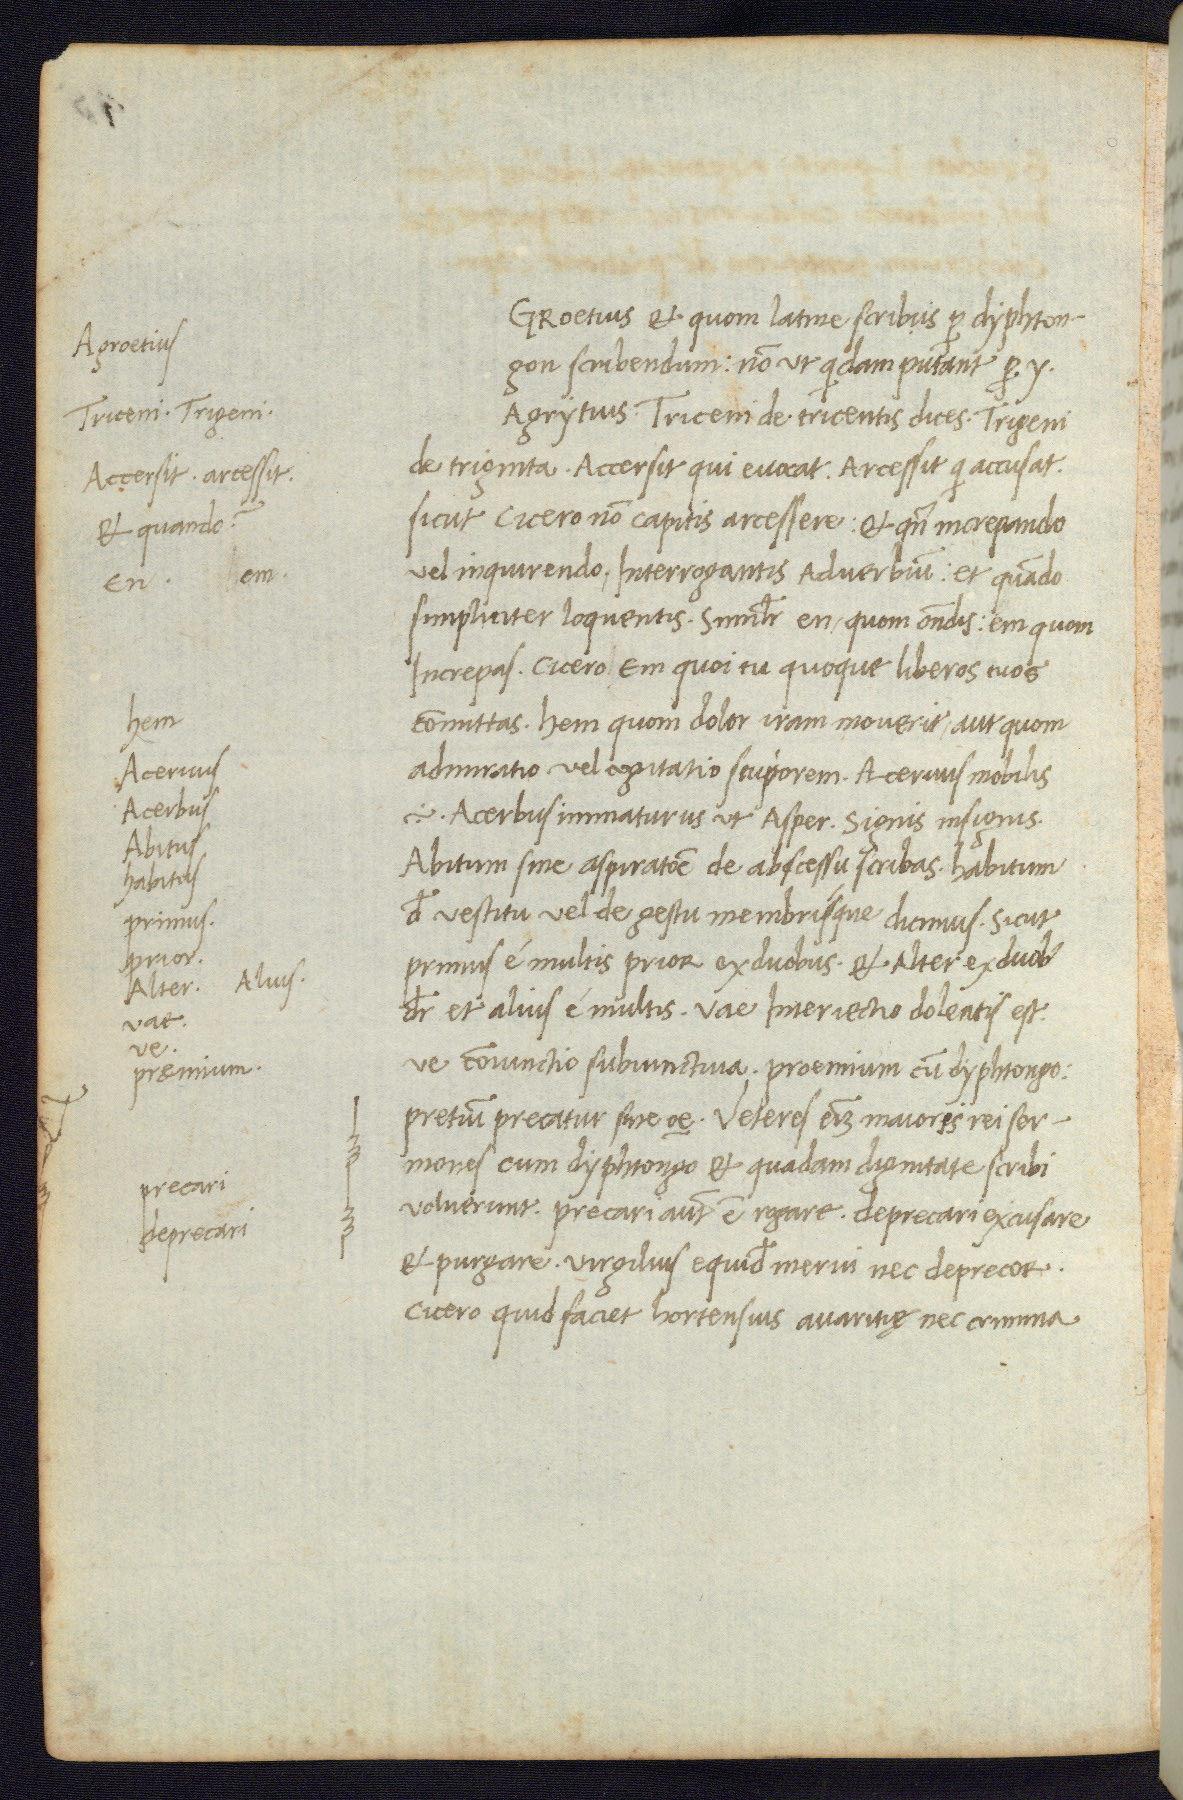 GRoetius & quom latine scribis p dyphton-
gon scribendum: nō ut qdam putant p. y.
Agrÿtius. Triceni de tricentis dices. Trigeni
de triginta. Accersit qui evocat. Arcessit q accusat.
sicut Cicero nō capitis arcessere: & qñ increpando
vel inquirendo, Interrogantis Adverbiū: et quādo
simpliciter loquentis. Similr en, quom ondis: em quom
Increpas. Cicero Em quoi tu quoque liberos tuos
cōmittas. hem quom dolor iram moverit, aut quom
admiratio vel cogitatio stuporem. Acervus mobilis
÷. Acerbus immaturus ut Asper. Signis insignis.
Abitum sine aspiratōe de abscessu scribas. habitum
d vestitu vel de gestu membrisque dicimus. Sicut
primus é multis prior ex duobus. & Alter ex duob
dr et alius é multis. Vae Interiectio dolentis est.
ve cōiunctio subiunctiva. proemium cū dyphtongo:
pretiū precatur sine oe. Veteres em maioris rei ser-
mones cum dyphtongo & quadam dignitate scribi
voluerunt. precari aut ē rogare. deprecari excusare
& purgare. Virgilius equid merui nec deprecor.
Cicero quid faciet hortensius avaritię nec crimina
Agroetius
Triceni. Trigeni.
Accersit. arcessit.
& quando.
En. em.
hem
Acervus
Acerbus
Abitus
habitus
primus.
prior.
Alter. Alius.
vae.
ve.
premium.
precari
deprecari